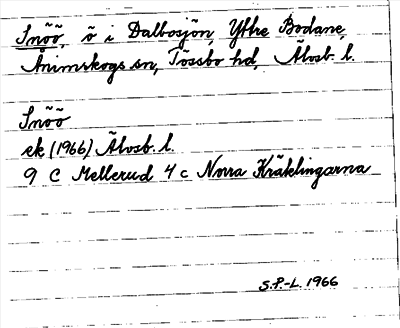 Snöö, ö i Dalbosjön, Yttre Bodane,
Ånimskogs sn, Tössbo hd, Älvsb. l.
Snöö
ek (1966) Älvsb. l.
9 C Mellerud 4 c Norra Kräklingarna
S.P.-L. 1966